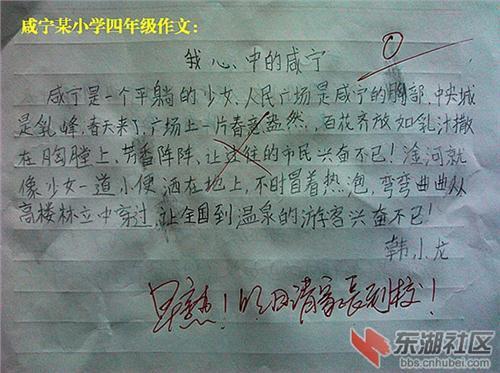 咸宁某小学四年级作文：
0
我心中的咸宁
咸宁是一个平躺的少女,人民广场是咸宁的胸部,中央城
是乳峰,春天来了,广场上一片春意盎然,百花齐放如乳汁撒
在胸膛上,芳香阵阵,让过往的市民兴奋不已！淦河就
像少女一道小便洒在地上,不时冒着热泡,弯弯曲曲从
高楼林立中穿过,让全国到温泉的游客兴奋不已！
韩小龙
早熟！明日请家长到校！
东湖社区
bbs.cnhubei.com